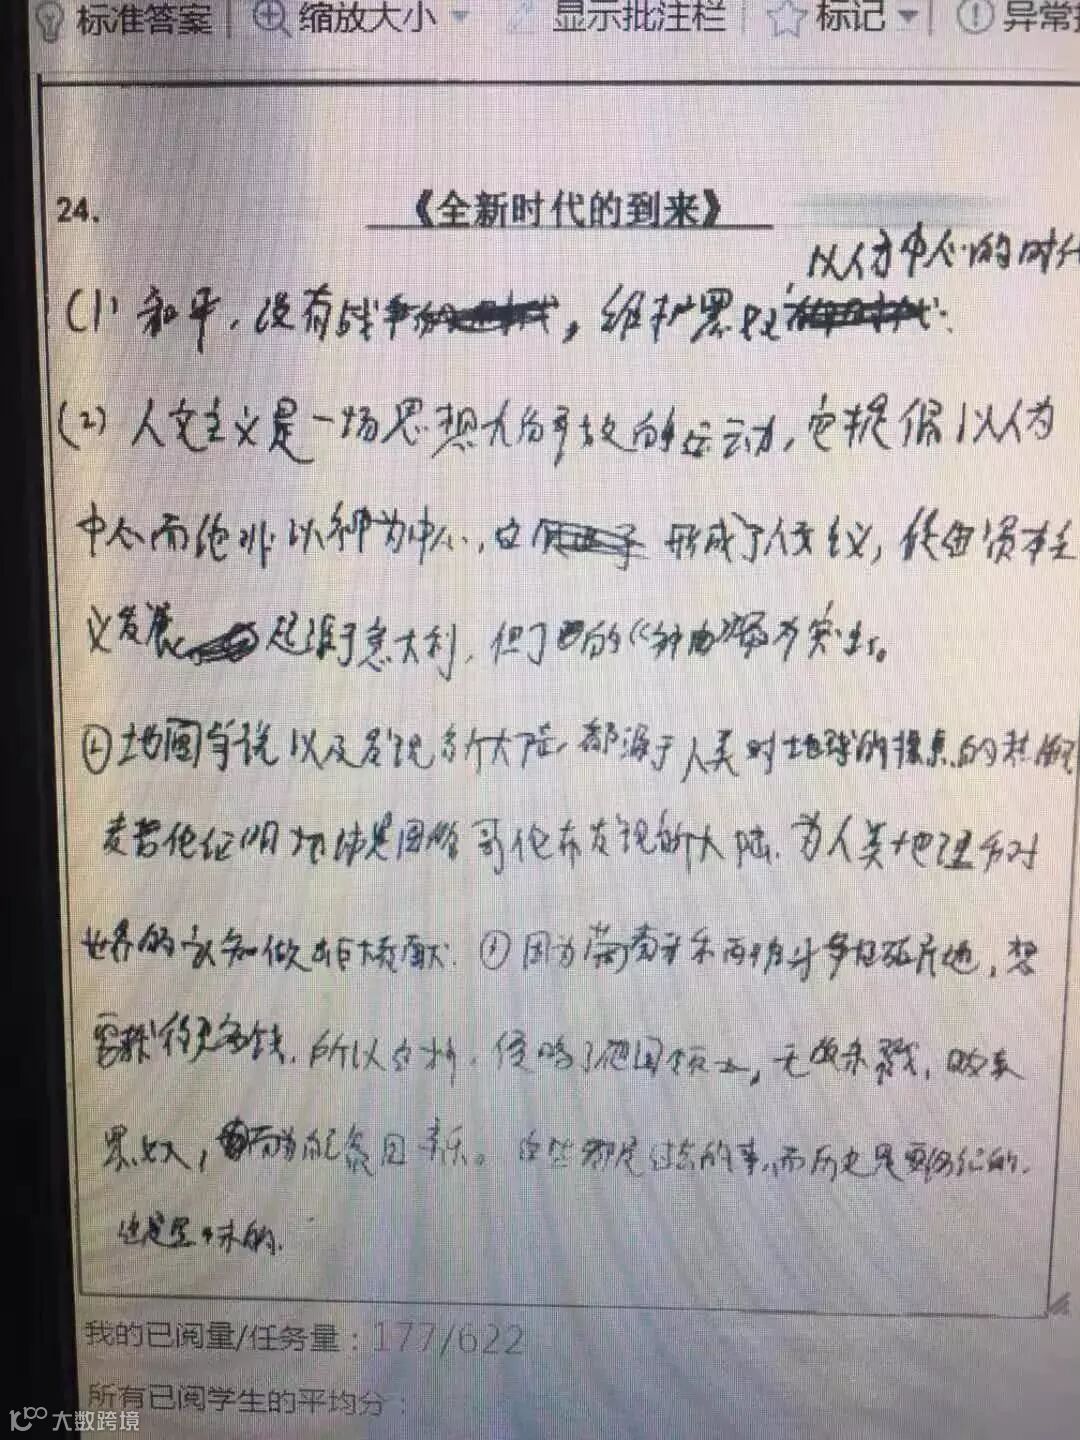 标准答案 缩放大小 显示批注栏 标记 异常
24. 《全新时代的到来》
以人为中心的时代
(1) 和平,没有战争,维护
(2) 人文主义是一场思想的运动,它提倡以人为
中心而绝非以神为中心,形成了人文主义,使由资本主
义发展 起源于意大利,但丁的《神曲》
②地圆学说以及发现多个大陆,都源于人类对地球的探索的热
麦哲伦证明地球是圆的哥伦布发现新大陆,为人类地理和对
世界的认知做出巨大贡献.①因为葡萄牙和西班牙多,想
要获得更多钱,所以,侵略了他国领土,无
,而为自己。这些都是过去的事,而历史是要铭记的,
也是
我的已阅量/任务量:177/622
所有已阅学生的平均分:
大数跨境